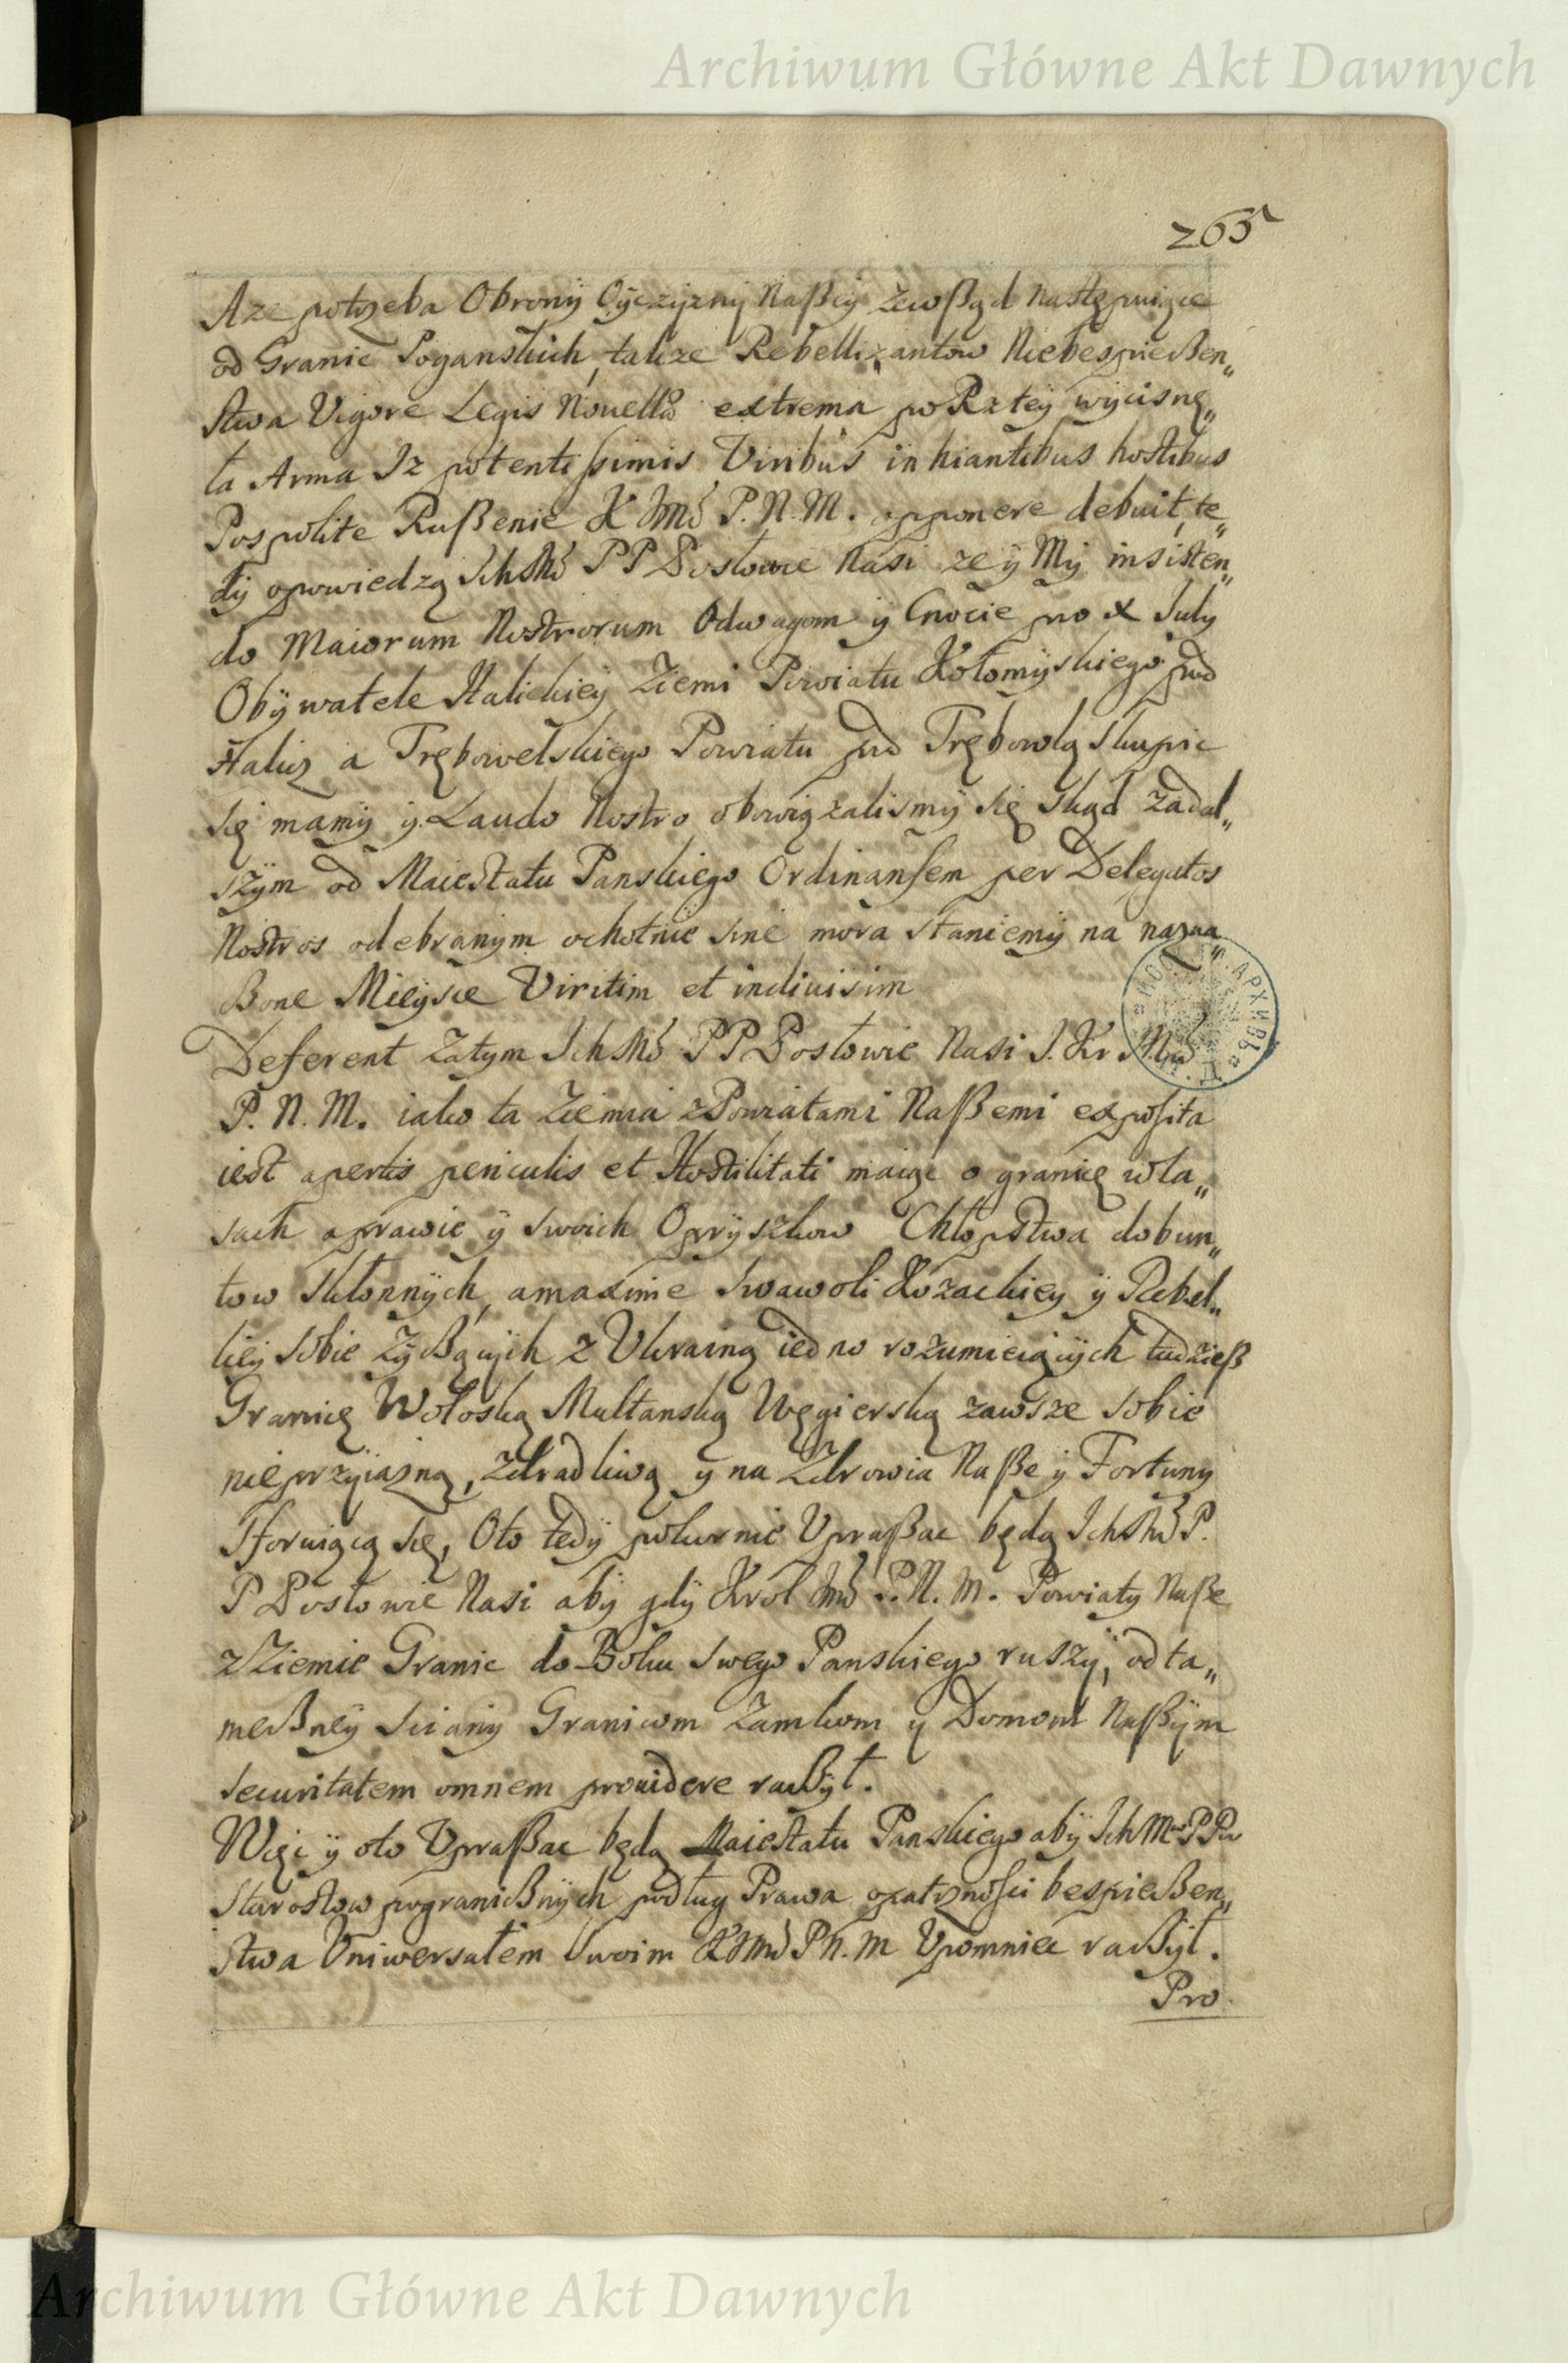 Archiwum Główne Akt Dawnych
265
Aze potrzeba Obrony Oÿczÿznÿ Naßeÿ zewßąd następuiące
od Granic Poganskich, takze Rebellizantow Niebespieczen„
stwa Vigore Legis Nouella extrema po Rzteÿ wÿcisnę„
ła Arma Iz potentissimis Viribus inhiantibus hostibus
Pospolite Rußenie K Jmć P. N. M. opponere debuit, te„
dÿ opowiedzą IchMć PP Posłowie Nasi ze ÿ Mÿ insisten„
do Maiorum Nostrorum Odwagom ÿ Cnocie pro X July
Obÿwatele Halickieÿ Ziemi Powiatu Kołomÿskiego pod
Halicz a Trębowelskiego Powiatu pod Trębowlą skupic
się mamÿ ÿ Laudo Nostro obowiązalismÿ się skąd zadal„
szÿm od Maiestatu Panskiego Ordinansem per Delegatos
Nostros odebranÿm ochotnie sine mora staniemÿ na nazna„
czone Mieÿsce Viritim et indiuisim
Deferent zatym IchMć PP Posłowie Nasi J. Kr Mći
P. N. M. iako ta Ziemia z Powiatami Naßemi exposita
iest apertis periculis et Hostilitati maiąc o granicę wła„
sach aprawie ÿ swoich Oprÿszkow Chłopstwa dobun„
tow skłonnÿch, amaxime swawoli Kozackieÿ ÿ Rebel„
lieÿ sobie zÿczącÿch z Vkrainą iedno rozumieiącÿch tudzieß
Granicę Wołoską Multanską Węgierską zawsze sobie
nieprzÿiazną, zdradliwą ÿ na Zdrowia Naße ÿ Fortuny
sforuiącą się, Oto tedÿ pokornie Vpraßac będą IchMć P.
P Posłowie Nasi abÿ gdÿ Krol Jmć P. N. M. Powiaty Naße
z Ziemie Granic do Boku swego Panskiego ruszÿ, od ta„
mecznej scianÿ Granicom Zamkom ÿ Domom Naßÿm
securitatem omnem prouidere raczÿł.
Więc ÿ oto Vpraßac będą Maiestatu Panskiego abÿ IchMćw PPw
Starostow pogranicznÿch podług Prawa opatrznosci bespieczen„
stwa Vniwersałem swoim K Jmć P N. M Vpomniec raczÿł.
Pro
Archiwum Główne Akt Dawnych